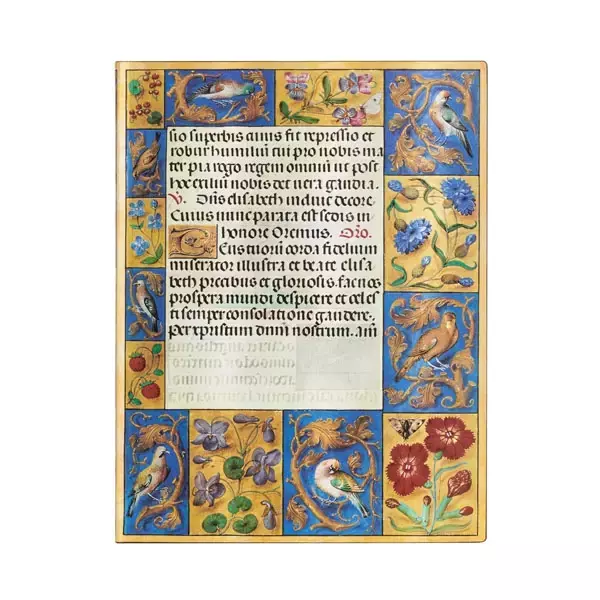 sio superbis cuius fit repressio et
robur humiliū tui pro nobis ma
ter pia rogo regem omniū ut post
hoc exiliū nobis det vera gaudia.
V. Dñs elisabeth induit decore
Cuius nunc parata est sedis in
honore Oremus. Oro.
Eus tuorū corda fidelium
miserator illustra et beate elisa
beth precabus et gloriosis fac nos
prospera mundi despicere et celes
ti semper consolatione gaudere.
Per xpistum dnm nostrum. am